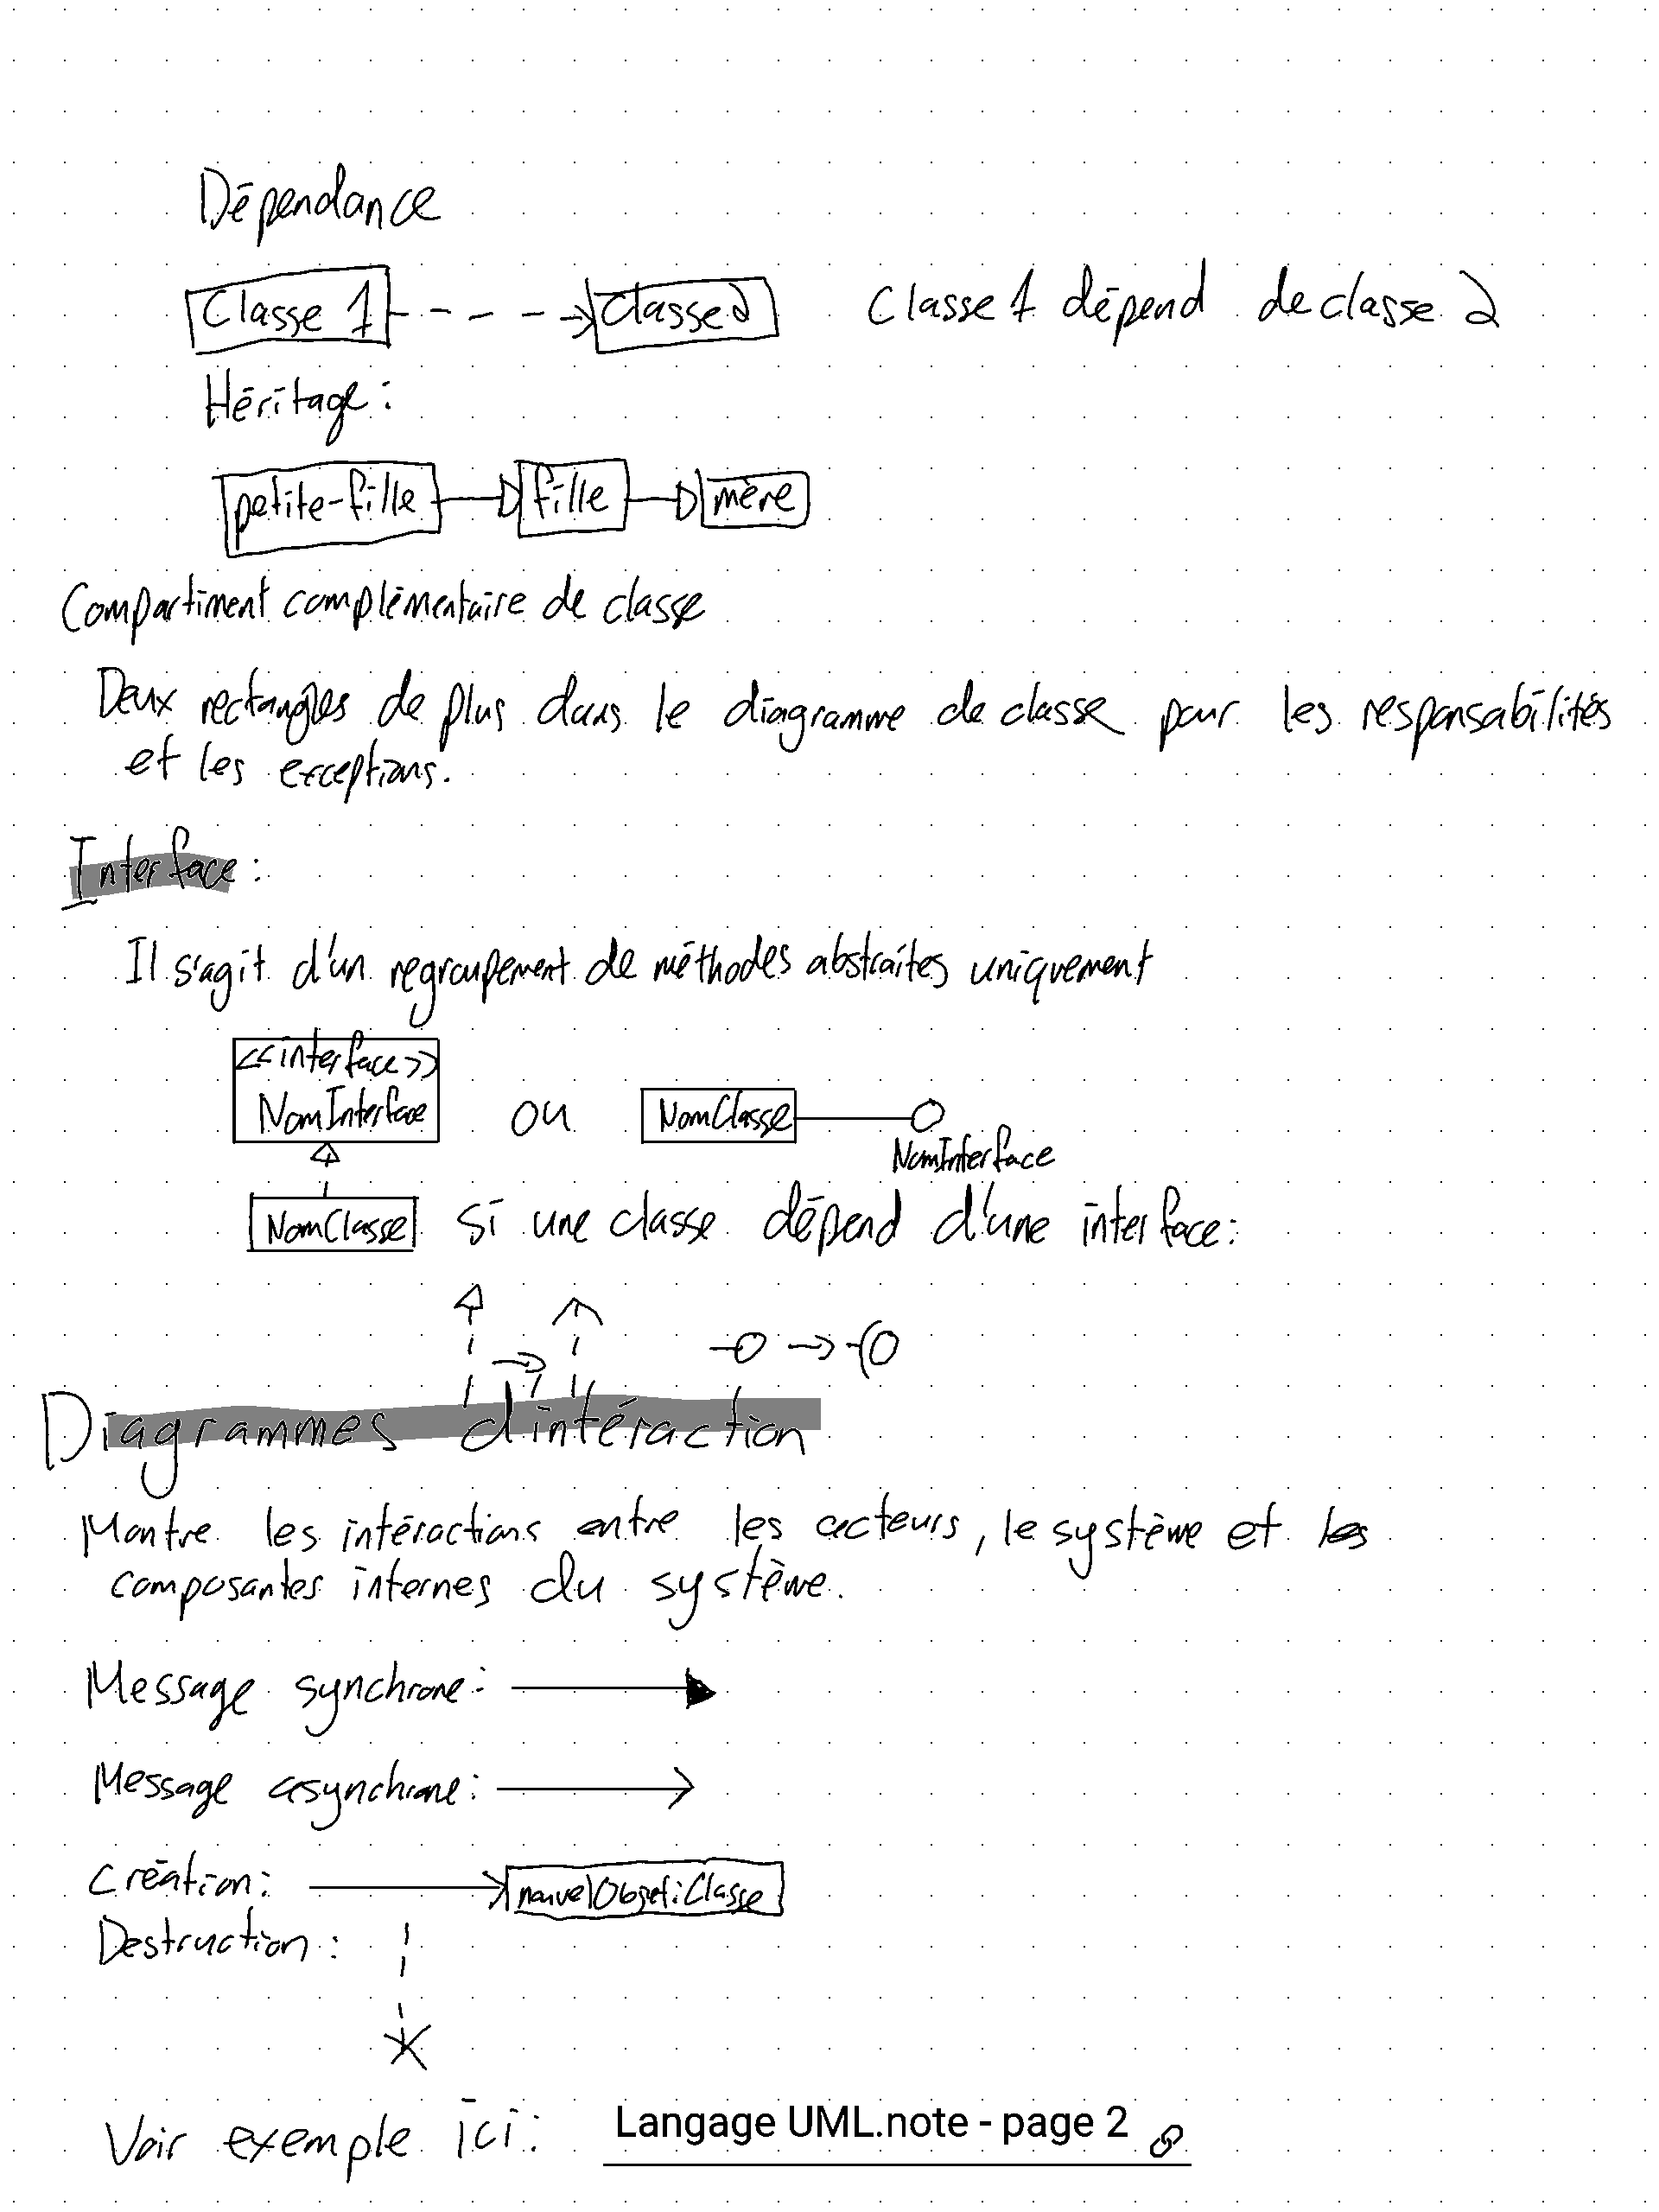 Dépendance
Classe 1 Classe 2 Classe 1 dépend de classe 2
Héritage :
petite-fille fille mère
Compartiment complémentaire de classe
Deux rectangles de plus dans le diagramme de classe pour les responsabilités
et les exceptions.
Interface :
Il s'agit d'un regroupement de méthodes abstraites uniquement
<<interface>>
NomInterface ou NomClasse
NomInterface
NomClasse si une classe dépend d'une interface :
Diagrammes d'intéraction
Montre les intéractions entre les acteurs, le système et les
composantes internes du système.
Message synchrone :
Message asynchrone :
Création : nouvelObjet:Classe
Destruction :
Voir exemple ici : Langage UML.note - page 2